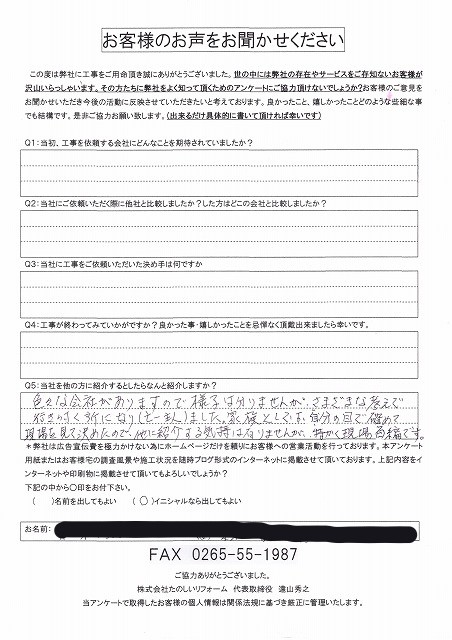 お客様のお声をお聞かせください
この度は弊社に工事をご用命頂き誠にありがとうございました。世の中には弊社の存在やサービスをご存知ないお客様が
沢山いらっしゃいます。その方たちに弊社をよく知って頂くためのアンケートにご協力頂けないでしょうか？お客様のご意見を
お聞かせいただき今後の活動に反映させていただきたいと考えております。良かったこと、嬉しかったことどのような些細な事
でも結構です。是非ご協力お願い致します。(出来るだけ具体的に書いて頂ければ幸いです)
Q1：当初、工事を依頼する会社にどんなことを期待されていましたか？
Q2：当社にご依頼いただく際に他社と比較しましたか？した方はどこの会社と比較しましたか？
Q3：当社に工事をご依頼いただいた決め手は何ですか
Q4：工事が終わってみていかがですか？良かった事・嬉しかったことを忌憚なく頂戴出来ましたら幸いです。
Q5：当社を他の方に紹介するとしたらなんと紹介しますか？
色々な会社がありますので様子は分りませんが、さまざまな考えで
行きやすく所になり
ました。家族としては、自分の目で確めて
現場を見て決めたので、他に紹介する気持はありませんが、
現場
です。
＊弊社は広告宣伝費を極力かけない為にホームページだけを頼りにお客様への営業活動を行っております。本アンケート
用紙またはお客様宅の調査風景や施工状況を随時ブログ形式のインターネットに掲載させて頂いております。上記内容をイ
ンターネットや印刷物に掲載させて頂いてもよろしいでしょうか？
下記の中から○印をお付下さい。
（　）名前を出してもよい　（○）イニシャルなら出してもよい
お名前：
FAX 0265-55-1987
ご協力ありがとうございました。
株式会社たのしいリフォーム　代表取締役　遠山秀之
当アンケートで取得したお客様の個人情報は関係法規に基づき厳正に管理いたします。